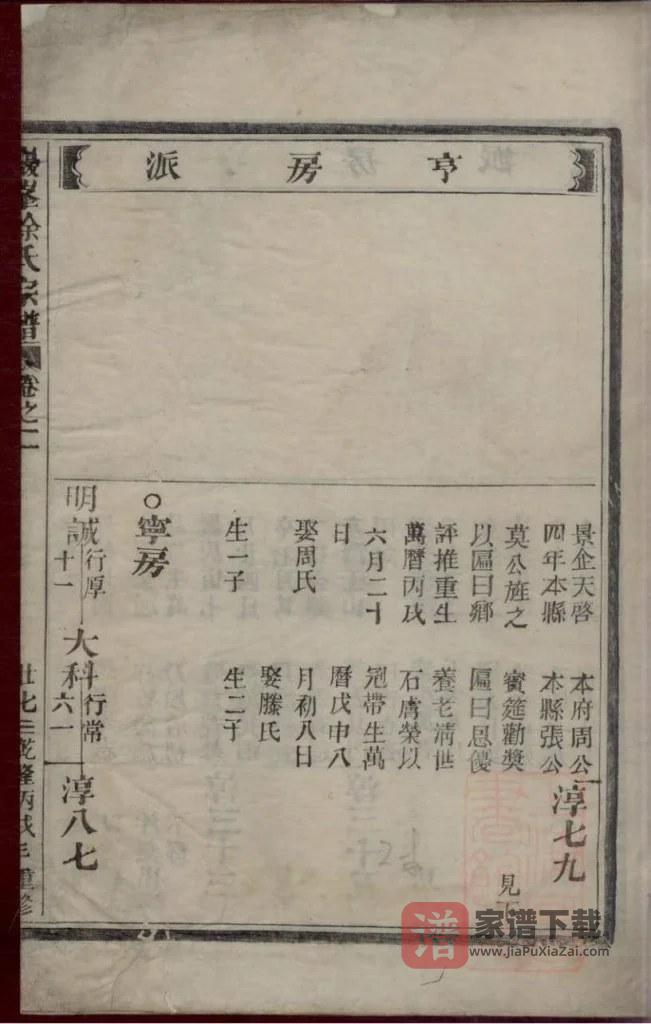 亨房派
景企天啓
四年本縣
莫公旌之
以匾曰鄉
評推重生
萬曆丙戌
六月二十
日
娶周氏
生一子
○寧房
明誠行厚十一
本府周公
本縣張公
賓筵勸獎
匾曰恩優
養老清世
石膚榮以
冠帶生萬
曆戊申八
月初八日
娶滕氏
生二子
大科行常六一
淳七九
見下
淳八七
峯徐氏宗譜
卷之二
乾隆丙戌年重修
譜
家谱下载
www.JiaPuXiaZai.com